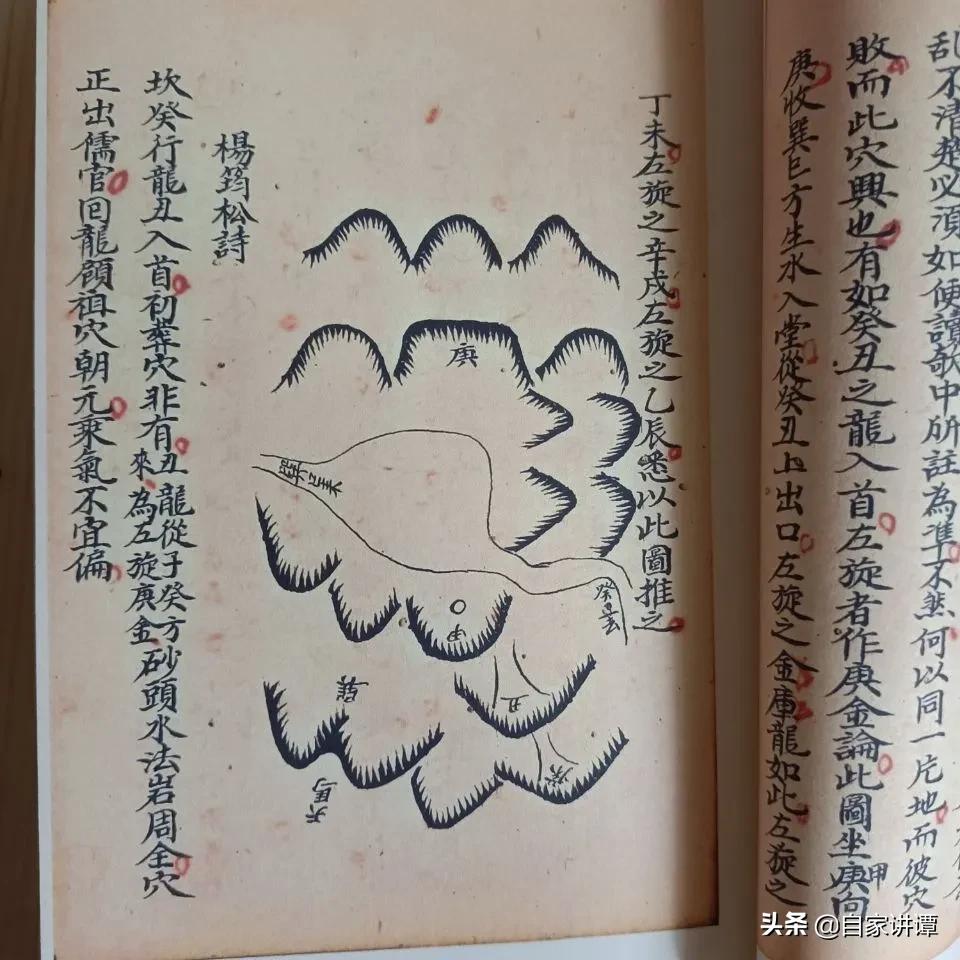 乱不清楚必須如便讀歌中所註為準不然何以同一片地而彼穴
敗而此穴興也有如癸丑之龍入首左旋者作庚金論此圖坐庚向甲
庚收巽巳方生水入堂從癸丑上出口左旋之金庫龍如此左旋之
丁未左旋之辛戌左旋之乙辰悉以此圖推之
庚
巽
癸丑
甲
丑
癸
天馬
楊筠松詩
坎癸行龍丑入首初葬穴非有丑龍從子癸方來為左旋庚金砂頭水法岩周全穴
正出儒官回龍顧祖穴朝元乘氣不宜偏
头条 @自家讲谭